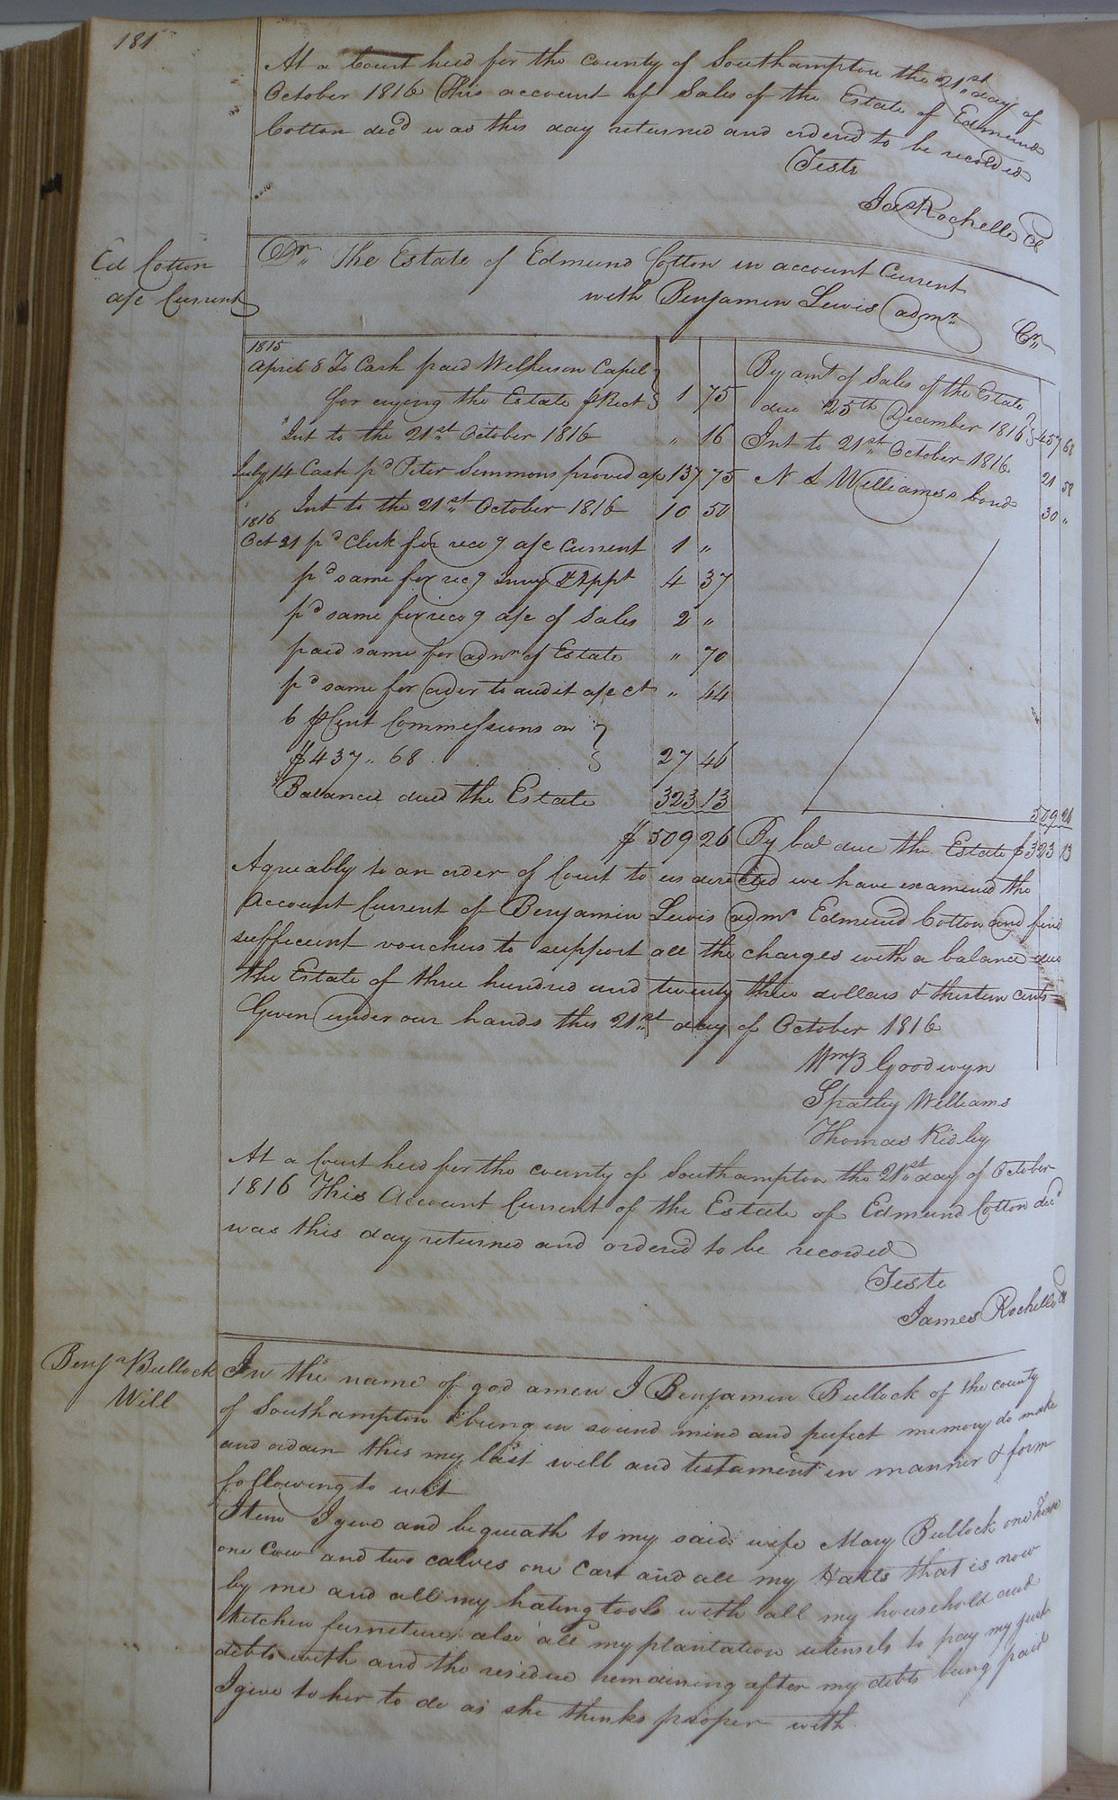 181
At a Court held for the county of Southampton the 21st day of
October 1816 This account of Sales of the Estate of Edmund
Cotton decd was this day returned and ordered to be recorded
Teste
Jas Rochelle Cl
Ed Cotton
a/c Current
Dr. The Estate of Edmund Cotton in account Current
with Benjamin Lewis admr
Cr.
1815
April 8 To Cash paid Wilkerson Capel
for crying the Estate p Rect } 1 75
Int to the 21st October 1816 " 16
July 14 Cash pd Peter Simmons proved a/c 137 75
Int to the 21st October 1816 10 50
1816
Oct 21 pd Clerk for recog a/c Current 1 "
pd same for recg Invy & Appt 4 37
pd same for recog a/c of Sales 2 "
paid same for admn of Estate " 70
pd same for order to audit a/c Ct " 44
6 p Cent Commissions on
$437 " 68 } 27 46
Balance due the Estate 323 13
$ 509 26
By amt of Sales of the Estate
due 25th December 1816 } 457 68
Int to 21st October 1816 21 58
N S Williams's bond 30 "
509 26
By bal due the Estate $323 13
Agreeably to an order of Court to us directed we have examined the
Account Current of Benjamin Lewis admr Edmund Cotton and find
sufficient vouchers to support all the charges with a balance due
the Estate of three hundred and twenty three dollars & thirteen cents
Given under our hands this 21st day of October 1816
Wm B Goodwyn
Spratley Williams
Thomas Ridley
At a Court held for the county of Southampton the 21st day of October
1816 This Account Current of the Estate of Edmund Cotton decd
was this day returned and ordered to be recorded
Teste
James Rochelle Cl
Benja Bullock
Will
In the name of god amen I Benjamin Bullock of the county
of Southampton being in sound mind and perfect memory do make
and ordain this my last will and testament in manner & form
following to wit
Item I give and bequeath to my said wife Mary Bullock one
one Cow and two calves one Cart and all my Hatts that is now
by me and all my hating tools with all my household and
kitchen furniture also all my plantation utensels to pay my just
debts with and the residue remaining after my debts being paid
I give to her to do as she thinks proper with